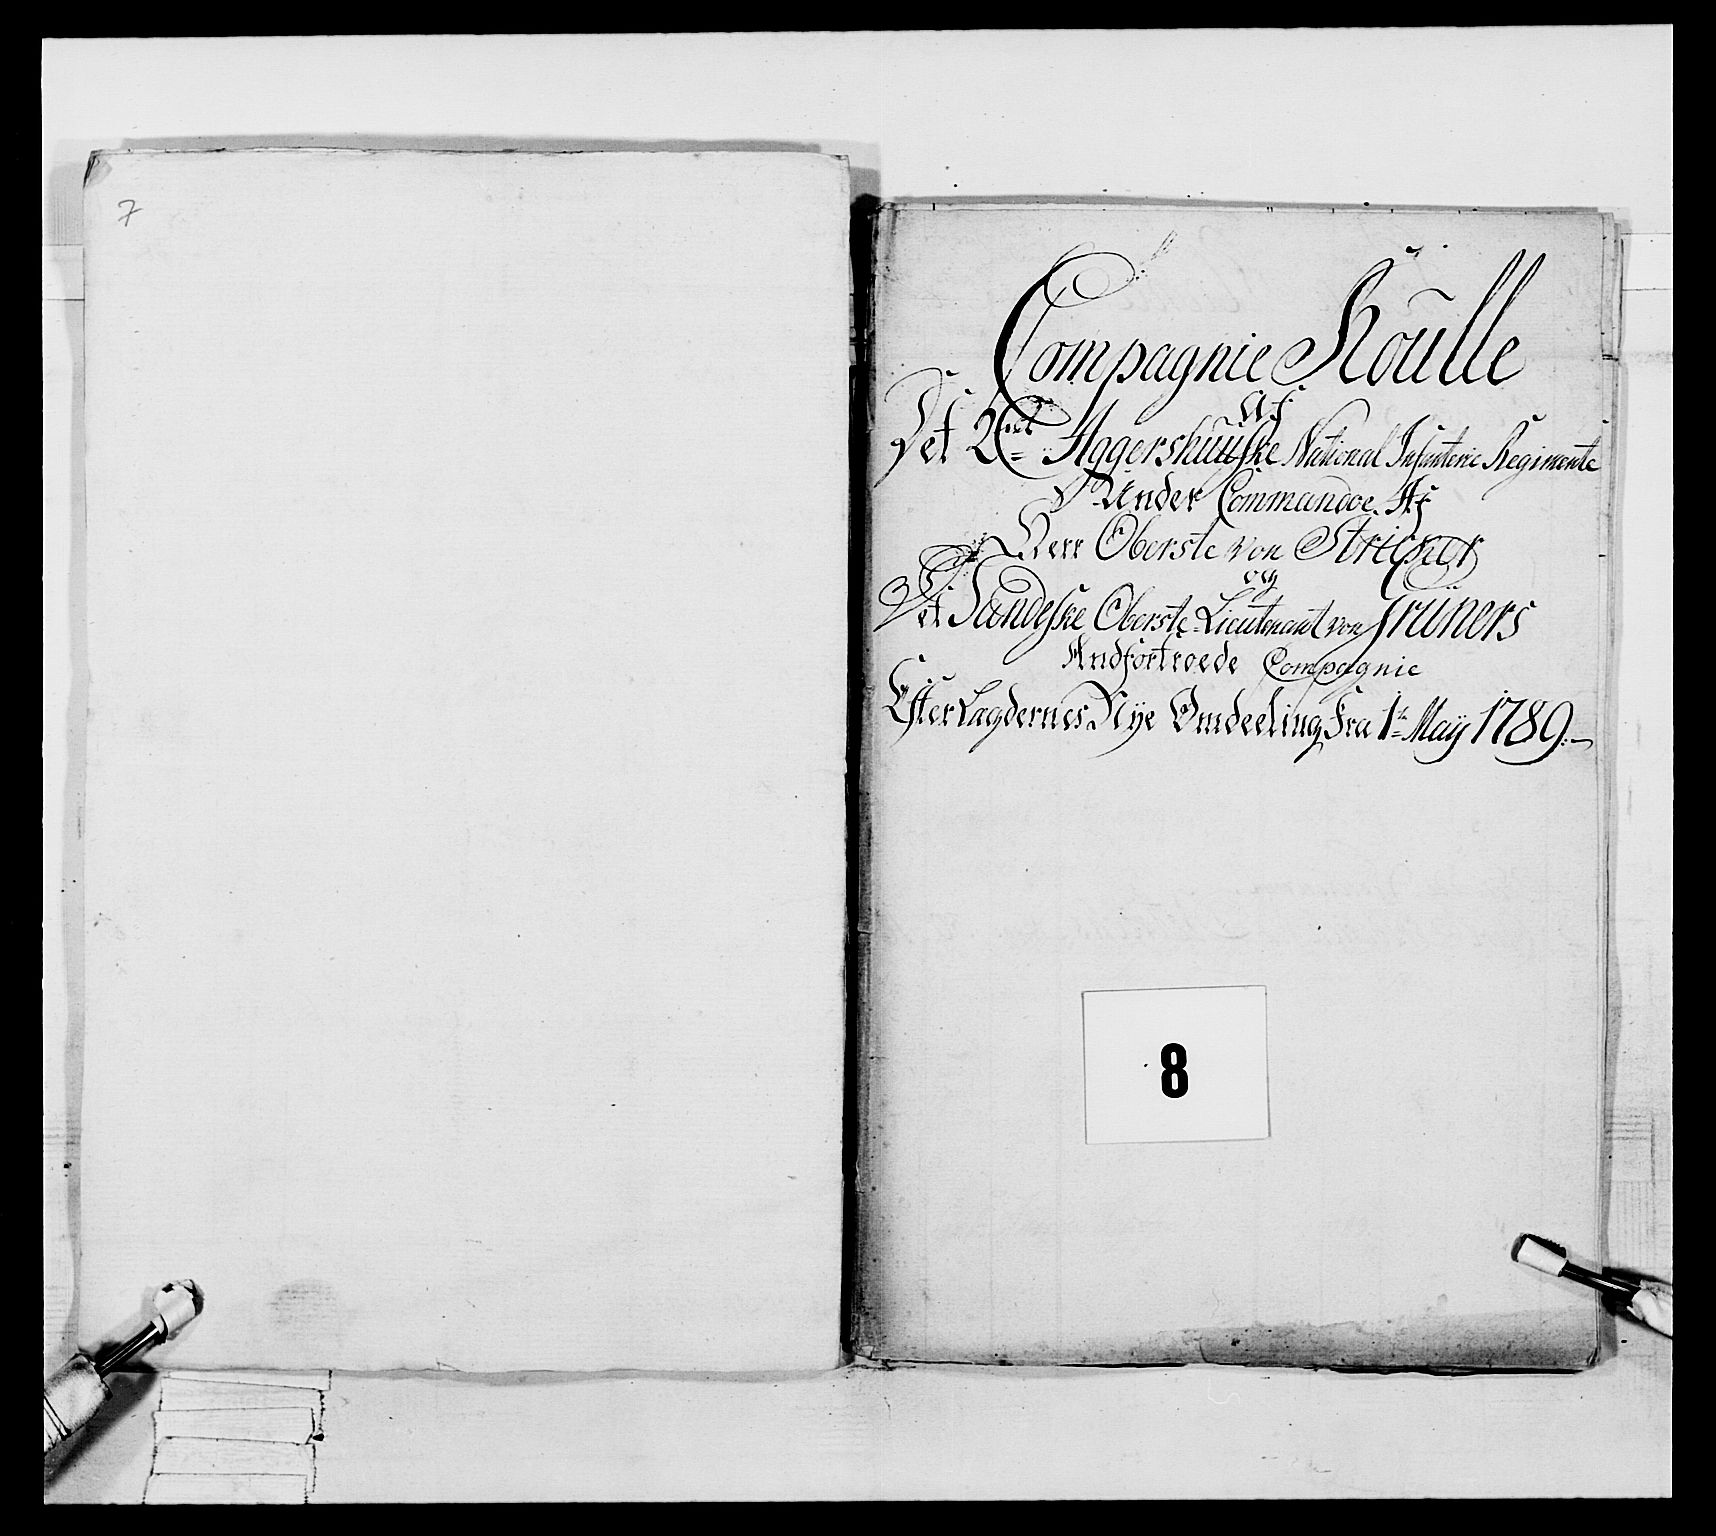 7
Compagnie Roulle
Af
Det 2det Aggershuusske National Infanterie Regimente
Under Commandoe Af
Herr Oberste von Stricker
og
Det Sandeske Oberste-Lieutenant von Grüners
Andfortroede Compagnie
Efter Lægdernes Nye Omdeeling Fra 1te May 1789.
8